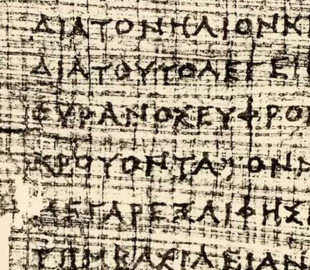 ΔΙΑΤΟΝΗΛΙΟΝΚ
ΔΙΑΤΟΥΤΟΛΕΓΕΙ
ΟΥΡΑΝΟΣΕΥΦΡΟ
ΚΡΟΥΟΝΤΑΤΟΝΝ
ΜΕΓΑΡΕΞΑΙΦΗΣΙ
ΤΗΜΒΑΣΙΛΕΙΑΝ